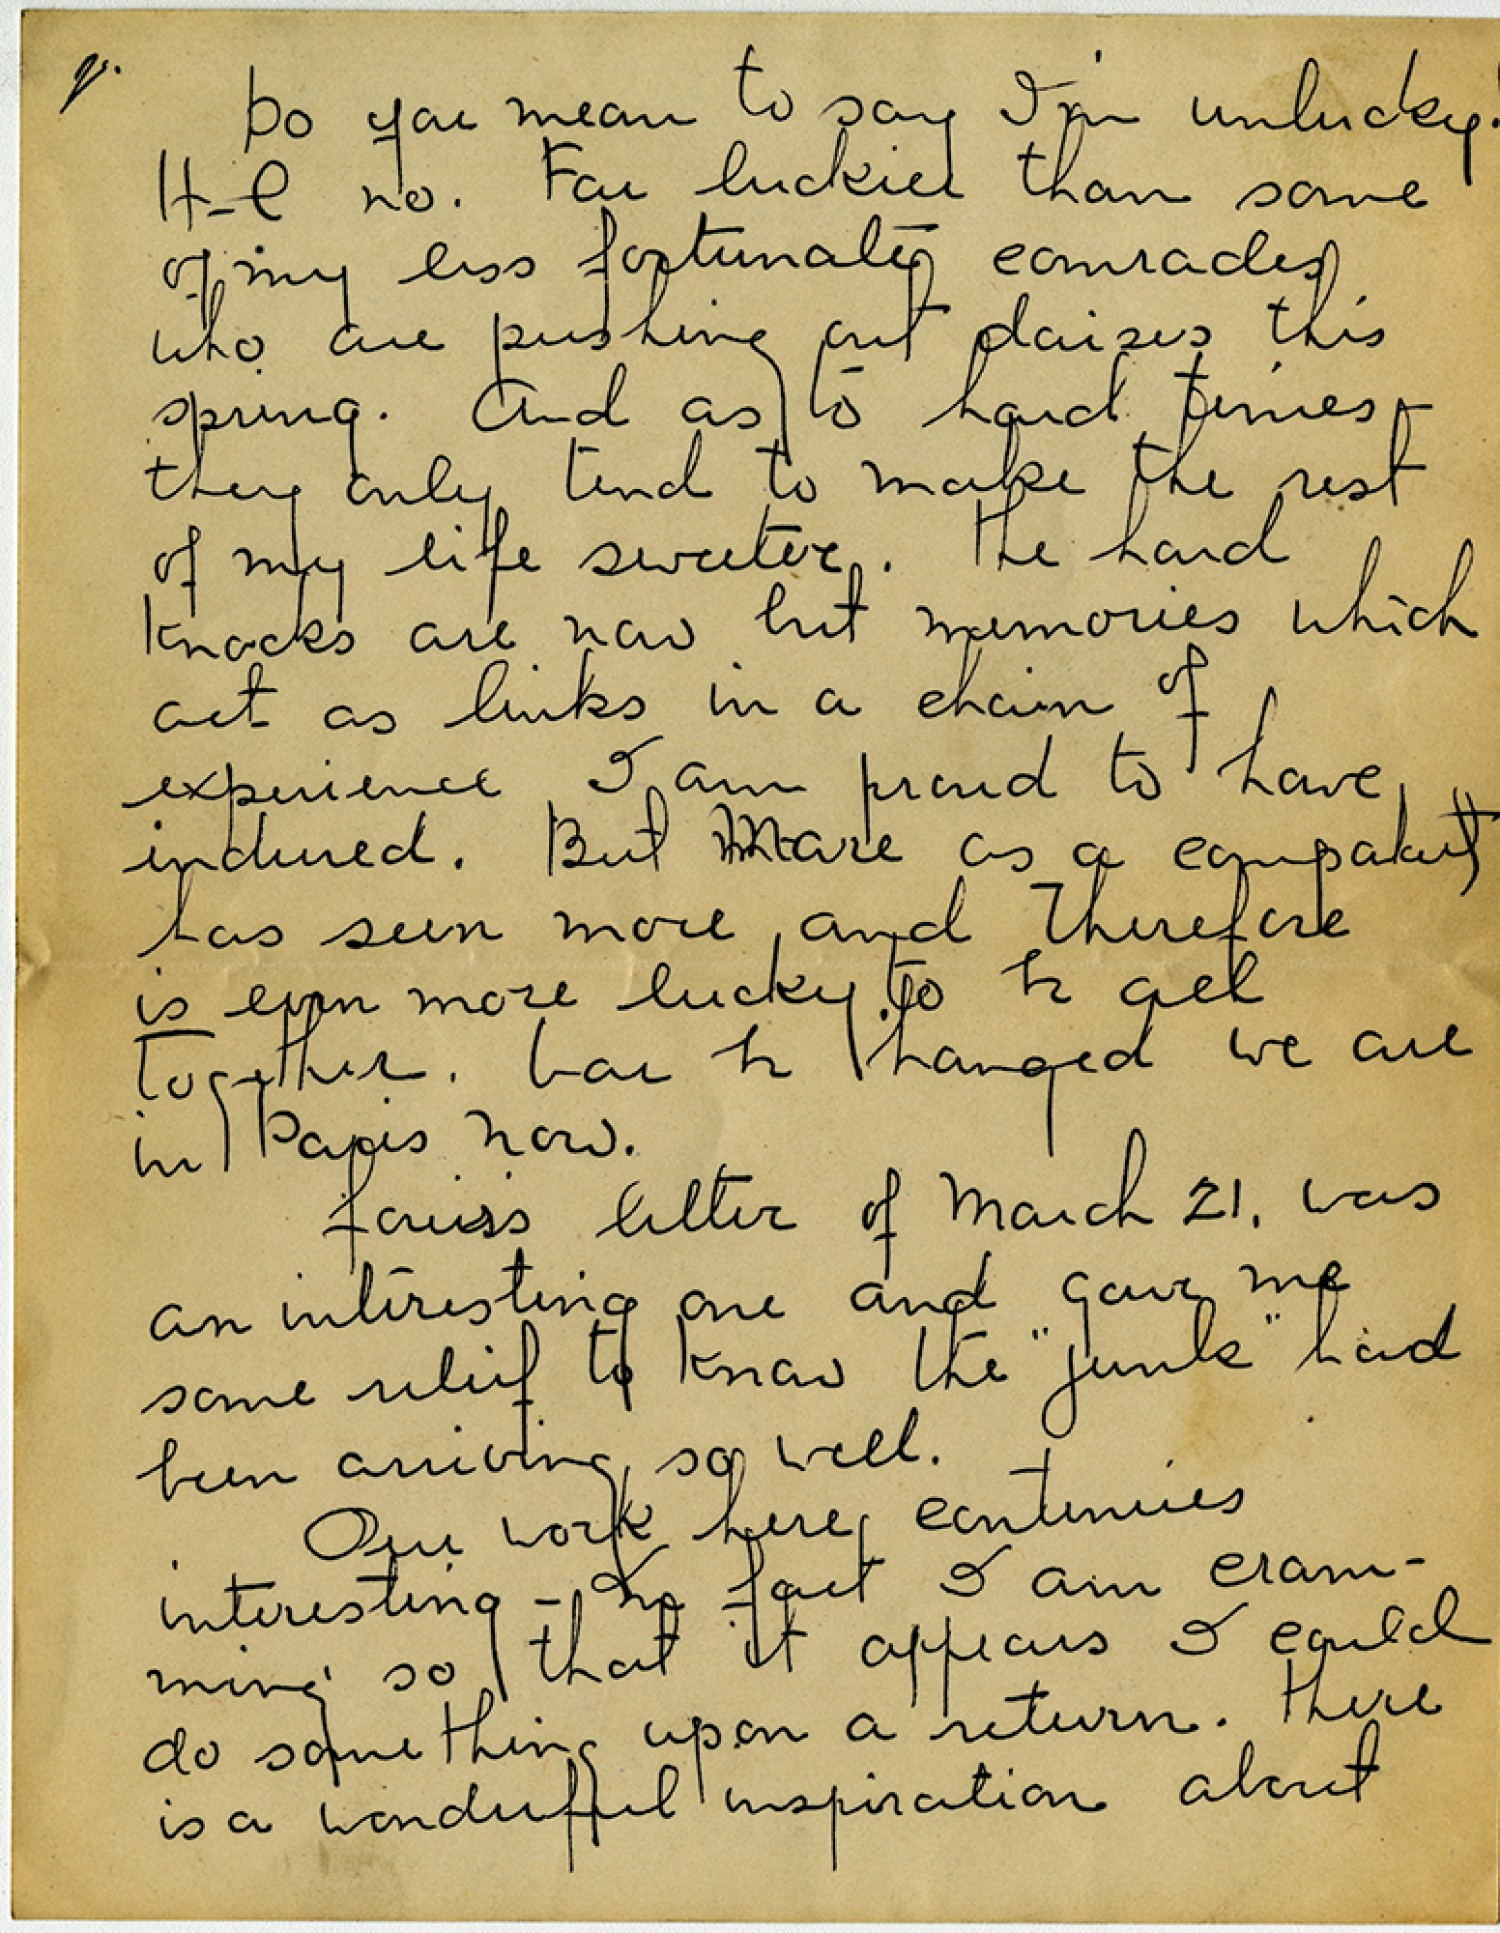 Do you mean to say I'm unlucky!
H-l no. Far luckier than some
of my less fortunate comrades
who are pushing out daizes this
spring. And as to hard times -
they only tend to make the rest
of my life sweeter. The hard
knocks are now but memories which
act as links in a chain of
experience I am proud to have
indured. But More as a
has seen more and therefore
is even more lucky. to h- all
together. War h- hanged we are
in Paris now.
letter of March 21. was
an interesting one and gave me
some relief to know the "junk" had
been arriving so well.
Our work here continues
interesting - In fact I am cram-
ming so that it appears I could
do something upon a return. There
is a wonderful inspiration about